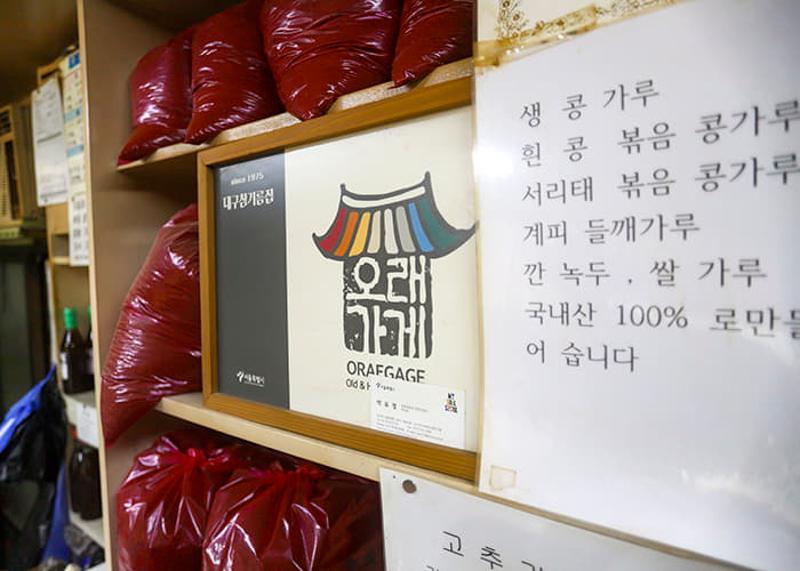 since 1975
대구참기름집
오래
가게
ORAEGAGE
Old &
서울특별시
생 콩 가루
흰 콩 볶음 콩가루
서리태 볶음 콩가루
계피 들깨가루
깐 녹두 , 쌀 가루
국내산 100% 로만들
어 습니다
고 추